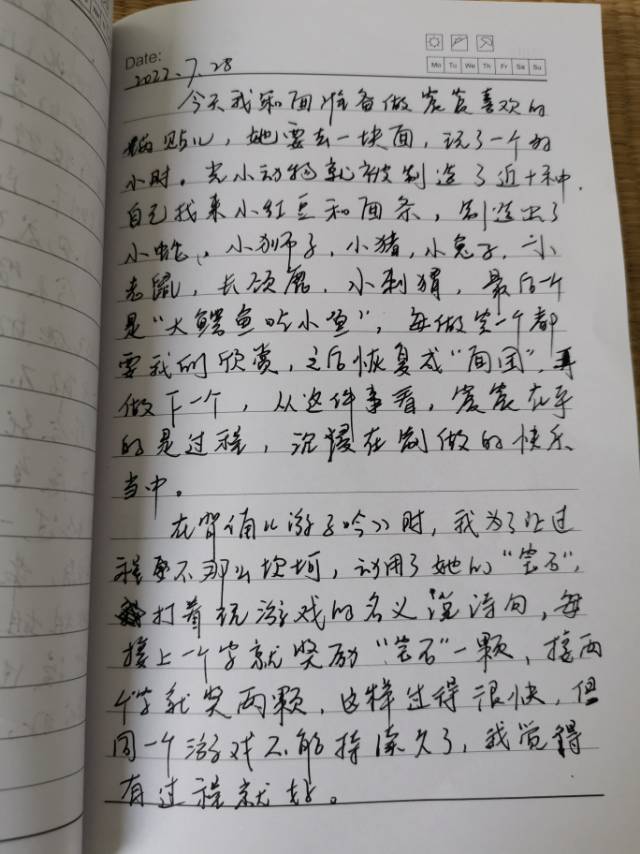 Date:
2022.7.28
Mo Tu We Th Fr Sa Su
今天我和面准备做宸宸喜欢的
锅贴儿，她要去一块面，玩了一个多
小时。光小动物就被制造了近十种.
自己找来小红豆和面条，制造出了
小蛇，小狮子，小猪，小兔子，小
老鼠，长颈鹿，小刺猬，最后一个
是“大鳄鱼吃小鱼”，每做完一个都
要我们欣赏，之后恢复成“面团”，再
做下一个，从这件事看，宸宸在乎
的是过程，沉浸在制做的快乐
当中。
在背诵《游子吟》时，我为了让过
程更不那么坎坷，动用了她的“宝石”，
打着玩游戏的名义说诗句，每
接上一个字就奖励“宝石”一颗，接两
个字就奖两颗，这样过得很快，但
同一个游戏不能持续久了，我觉得
有过程就好。